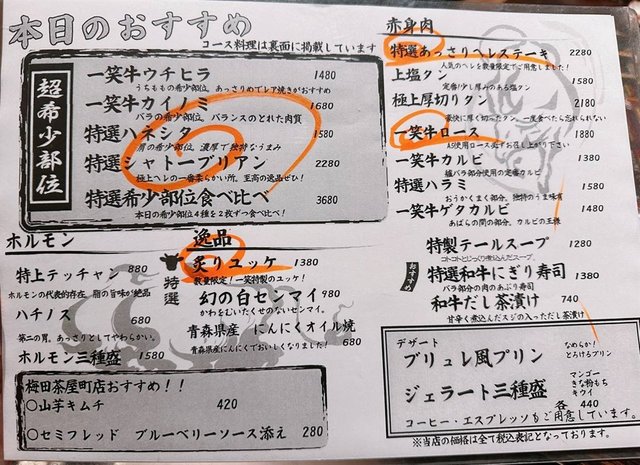 本日のおすすめ
コース料理は裏面に掲載しています
超希少部位
一笑牛ウチヒラ 1480
うちももの希少部位、あっさりめでレア焼きがおすすめ
一笑牛カイノミ 1680
バラの希少部位、バランスのとれた肉質
特選ハネシタ 1580
肩の希少部位、濃厚で独特なうまみ
特選シャトーブリアン 2280
極上ヘレの一番柔らかい所、至高の逸品ぜひ!
特選希少部位食べ比べ 3680
本日の希少部位4種を2枚ずつ食べ比べ!
ホルモン
特上テッチャン 880
ホルモンの代表的存在、脂の旨味が絶品
ハチノス 680
第二の胃。あっさりとしてやわらかい。
ホルモン三種盛 1580
逸品
特選
炙りユッケ 1380
数量限定!一笑特製のユッケ!
幻の白センマイ 980
かわをむいたくせのないセンマイ。
青森県産 にんにくオイル焼
青森県産にんにくでおいしくなりました! 680
梅田茶屋町店おすすめ!!
○山芋キムチ 420
○セミフレッド ブルーベリーソース添え 280
赤身肉
特選あっさりヘレステーキ 2280
人気のヘレを数量限定でご用意しました!
上塩タン 1580
定番!少し厚みのある塩タン
極上厚切りタン 2180
豪快に厚く切ったタン、一度食べたら忘れられない
一笑牛ロース 1880
A5使用ロース是非お召し上がり下さい
一笑牛カルビ 1380
バラ部分使用の定番カルビ
特選ハラミ 1580
おうかくまく部分。独特のうま味有
一笑牛ゲタカルビ 1480
あばらの間の部分、カルビの王様
特製テールスープ 1280
コトコトとじっくり煮込んだスープ
おすすめ
特選和牛にぎり寿司 1380
バラ部分の肉のあぶり寿司
和牛だし茶漬け 740
甘辛く煮込んだスジの入っただし茶漬け
デザート
ブリュレ風プリン
なめらか!
とろけるプリン
ジェラート三種盛
マンゴー
きな粉もち
キウイ
各 440
コーヒー・エスプレッソもご用意しています。
※当店の価格は全て税込表記となっております。